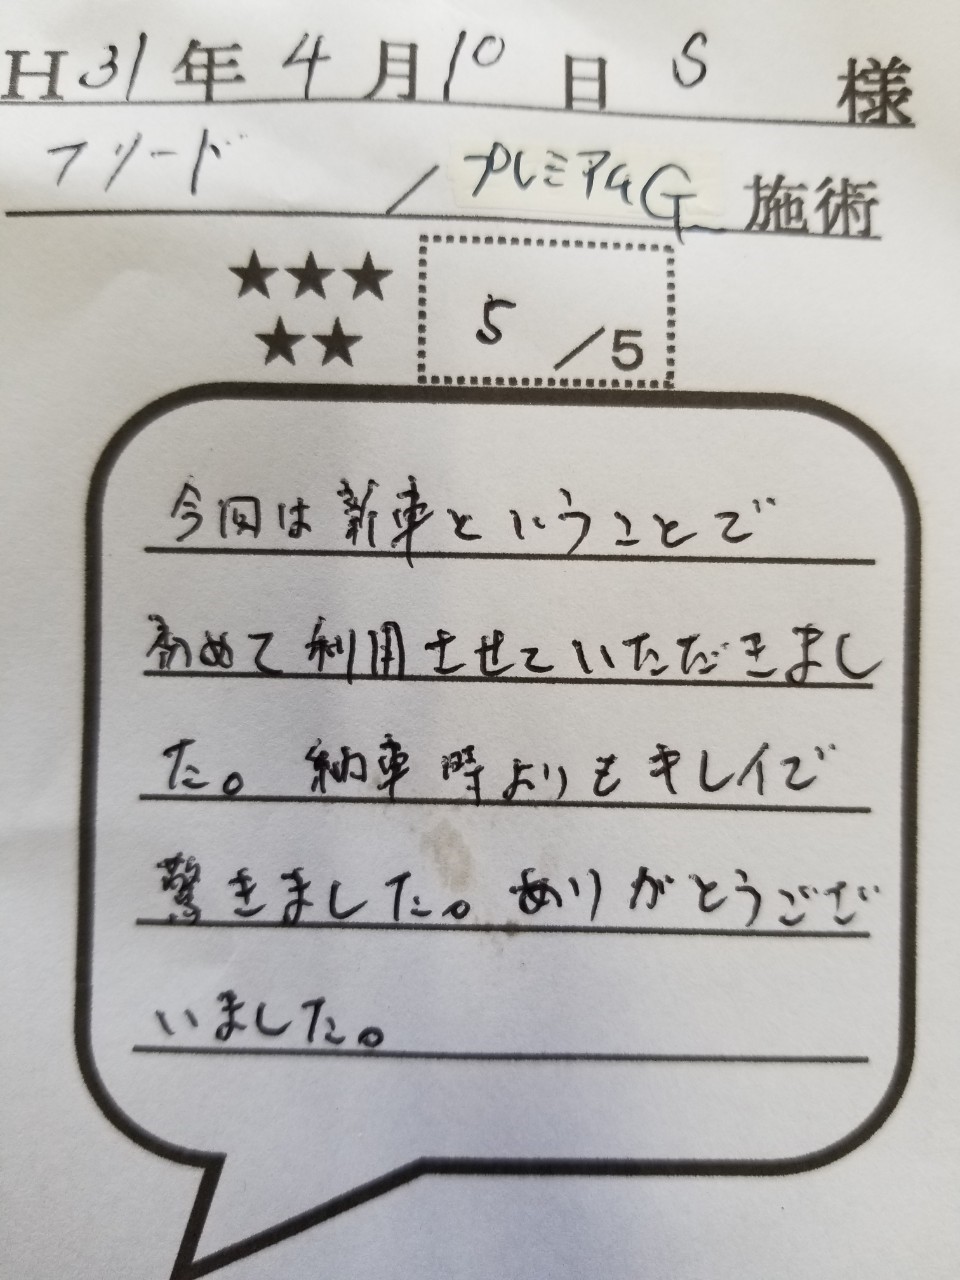 H31年4月10日 S 様
フリード / プレミアムG 施術
★★★
★★
5/5
今回は新車ということで
初めて利用させていただきまし
た。納車時よりもキレイで
驚きました。ありがとうござ
いました。